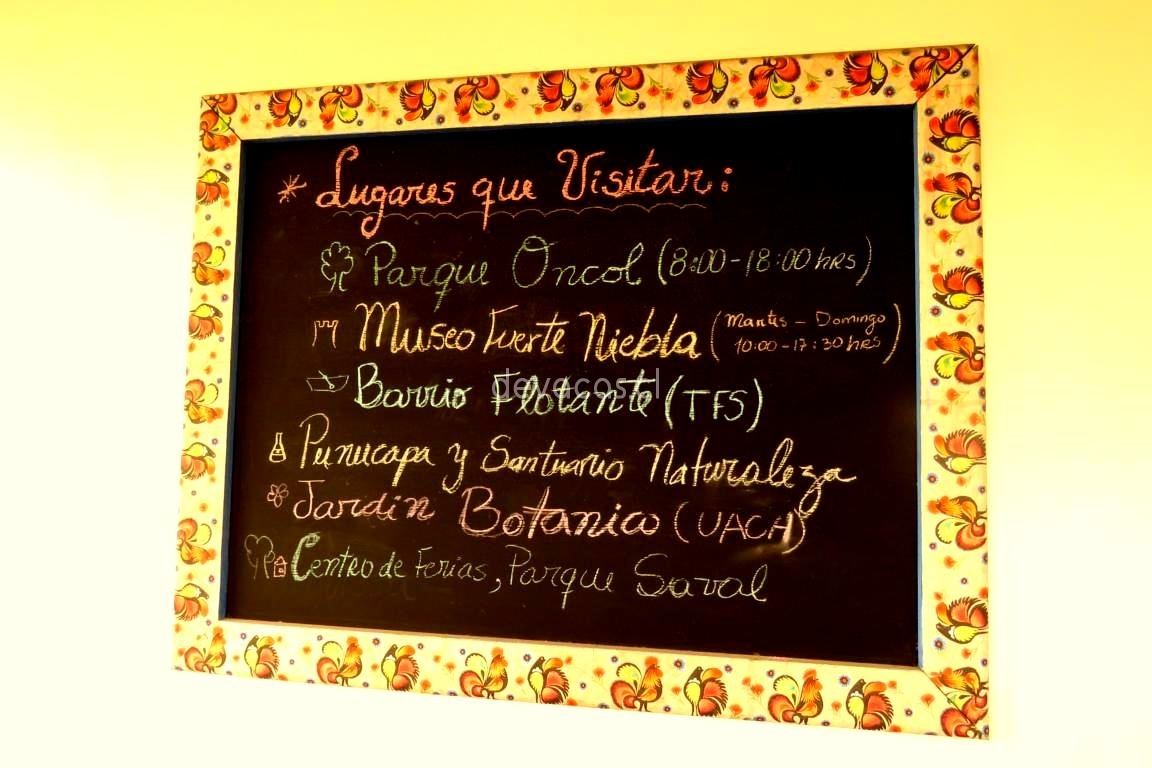 * Lugares que Visitar:
Parque Oncol (8:00-18:00 hrs)
Museo Fuerte Niebla (Martes - Domingo
10:00 - 17:30 hrs)
Barrio Flotante (TFS)
Punucapa y Santuario Naturaleza
Jardin Botanico (UACH)
Centro de Ferias, Parque Saval